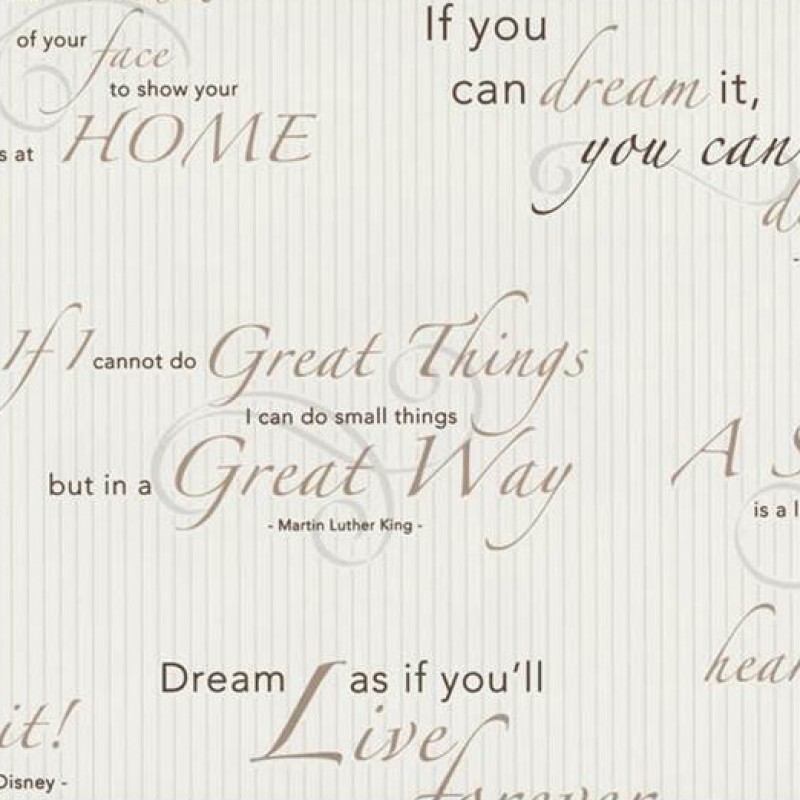 of your face
to show your
at HOME
If you
can dream it,
you can
If I cannot do Great Things
I can do small things
but in a Great Way
- Martin Luther King -
A
is a
Dream as if you'll
Live
forever
it!
Disney -